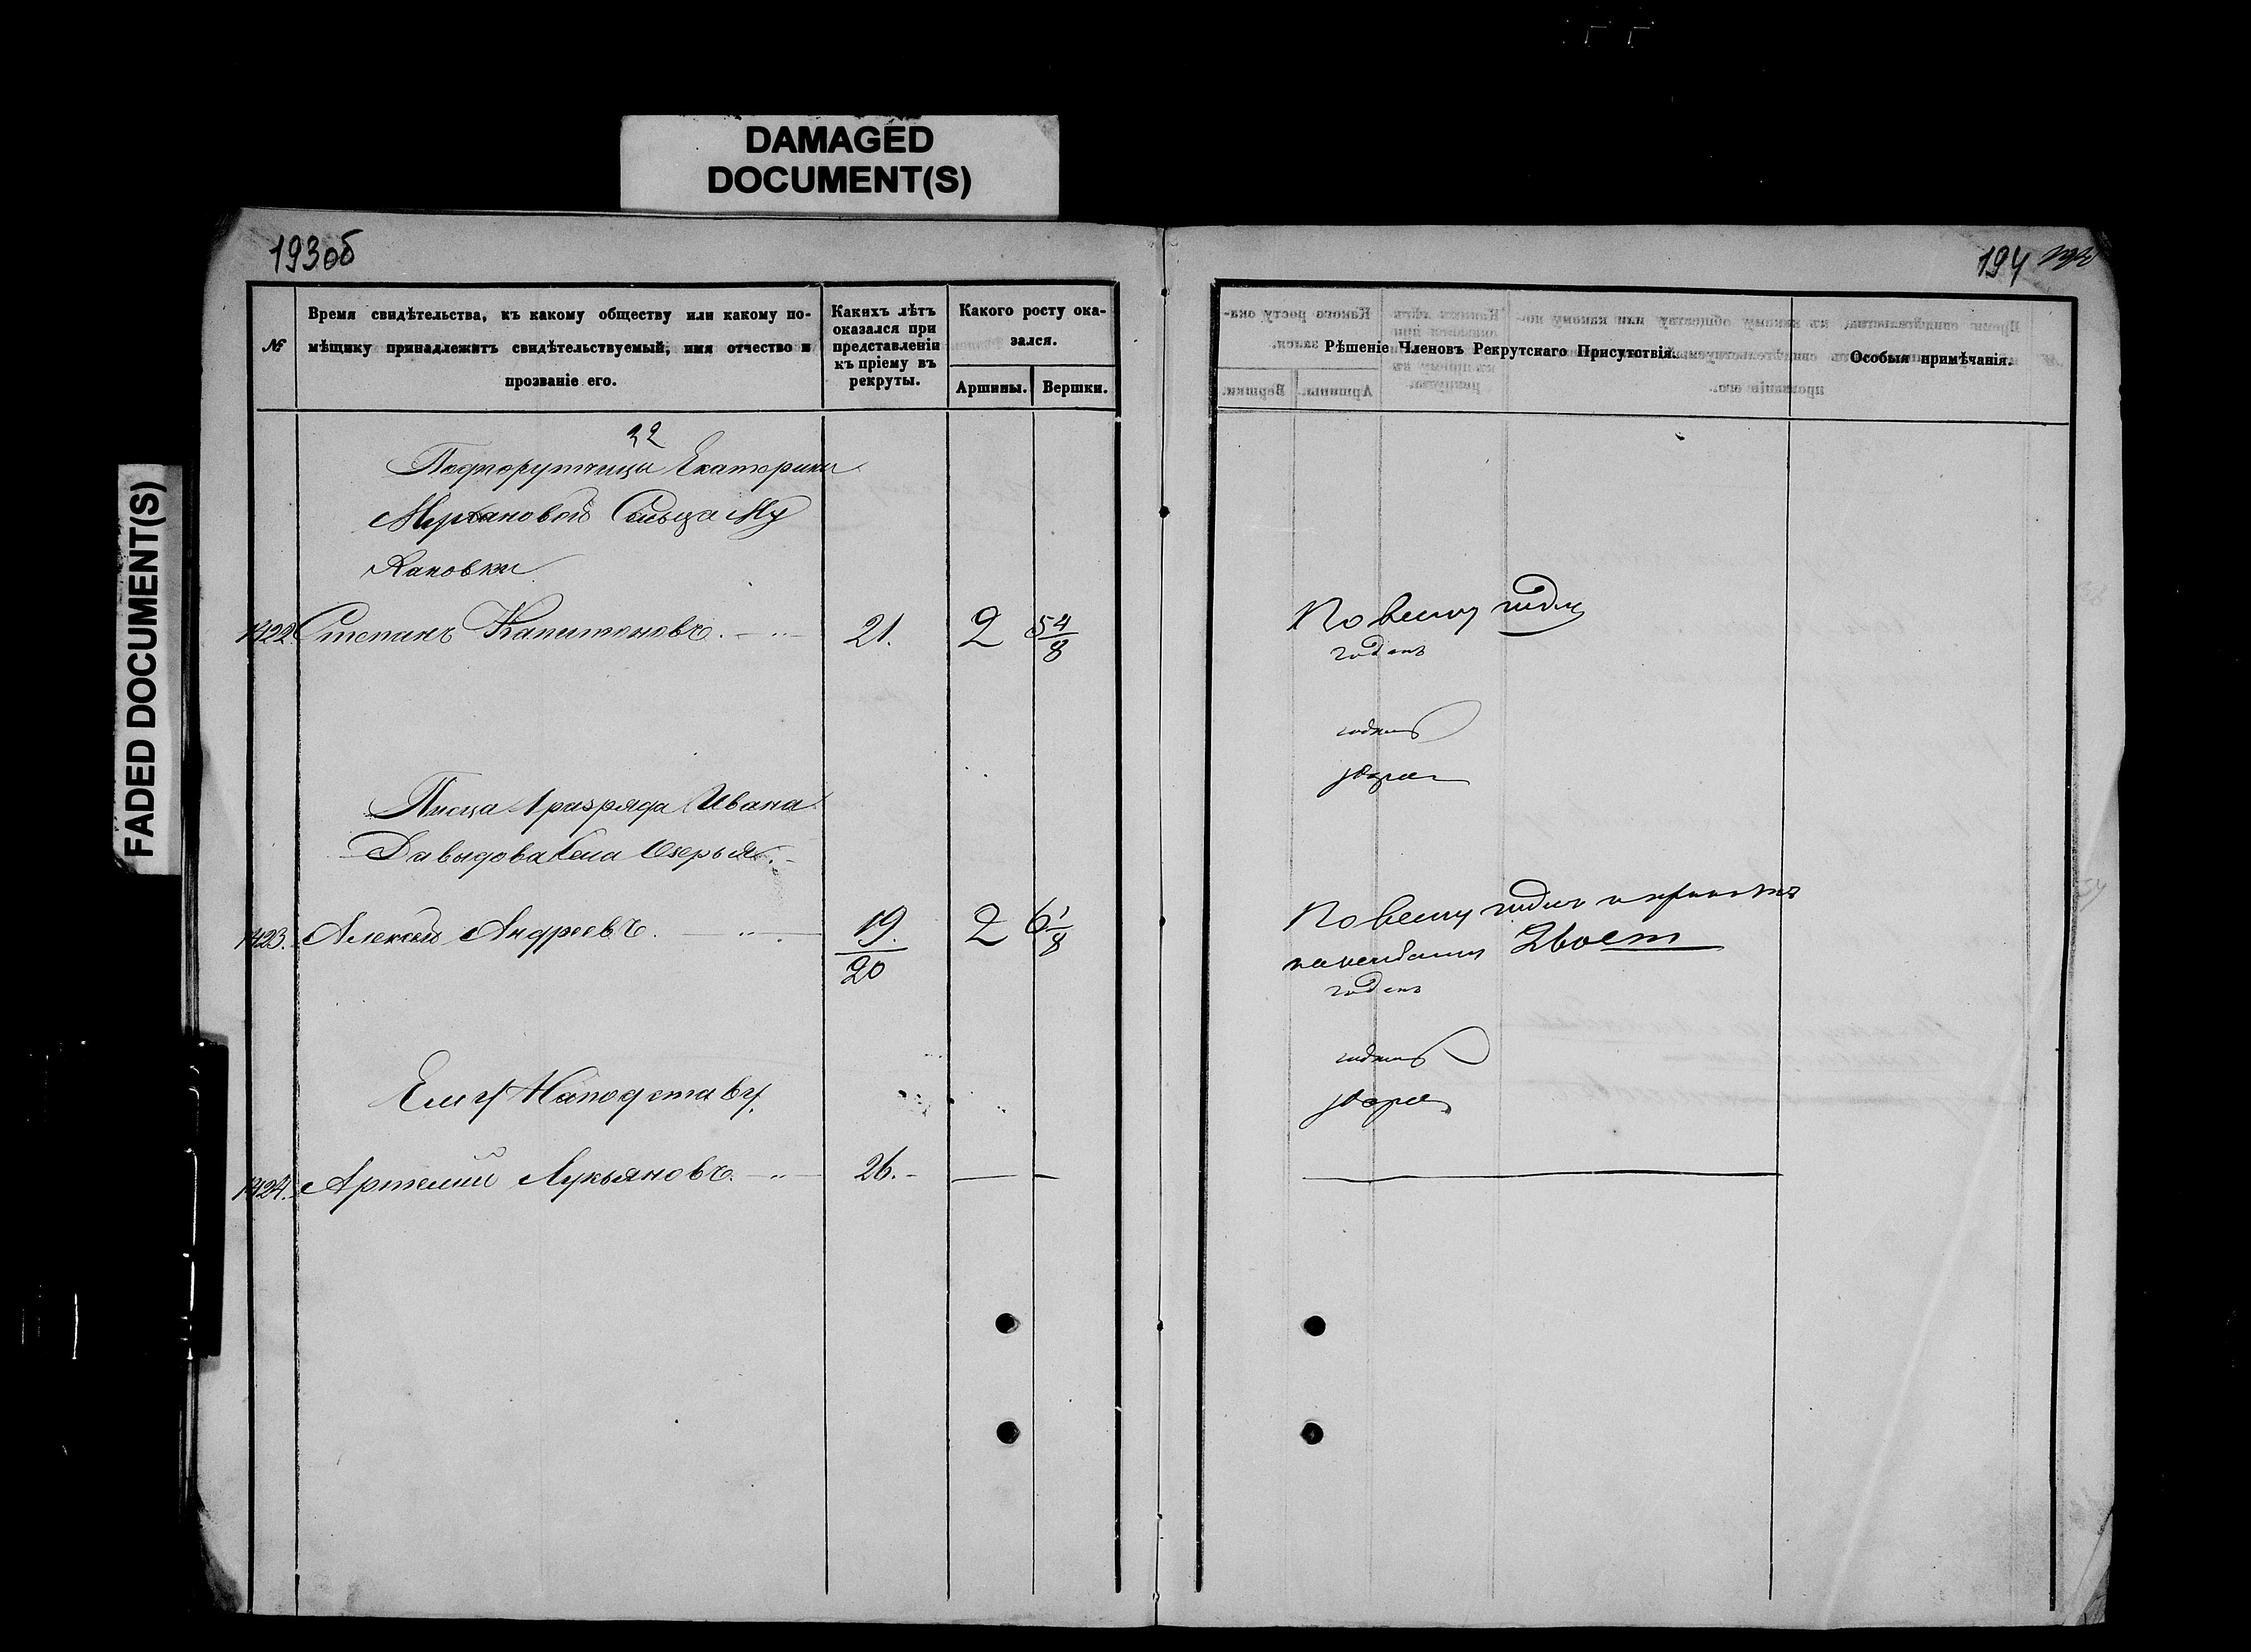 DAMAGED
DOCUMENT(S)
FADED DOCUMENT(S)
193об
№
Время свидѣтельства, къ какому обществу или какому по-
мѣщику принадлежитъ свидѣтельствуемый, имя отчество и
прозваніе его.
Какихъ лѣтъ
оказался при
представленіи
къ пріему въ
рекруты.
Какого росту ока-
зался.
Аршины.
Вершки.
22
Подпорутчицы Екатерины
Сельца Му
хановки
1422. Степанъ Капитоновъ. 21. 2 5 4/8
Писца 1 разряда Ивана
Давыдова Села Озерья.
1423. Алексѣй Андреевъ. 19./20 2 6 1/8
Ему Наподставу.
1424. Артемий Лукьяновъ. 26. —
194
Рѣшеніе Членовъ Рекрутскаго Присутствія.
Особыя примѣчанія.
По всему годен
годенъ
годенъ
По всему годен и
годенъ
годенъ